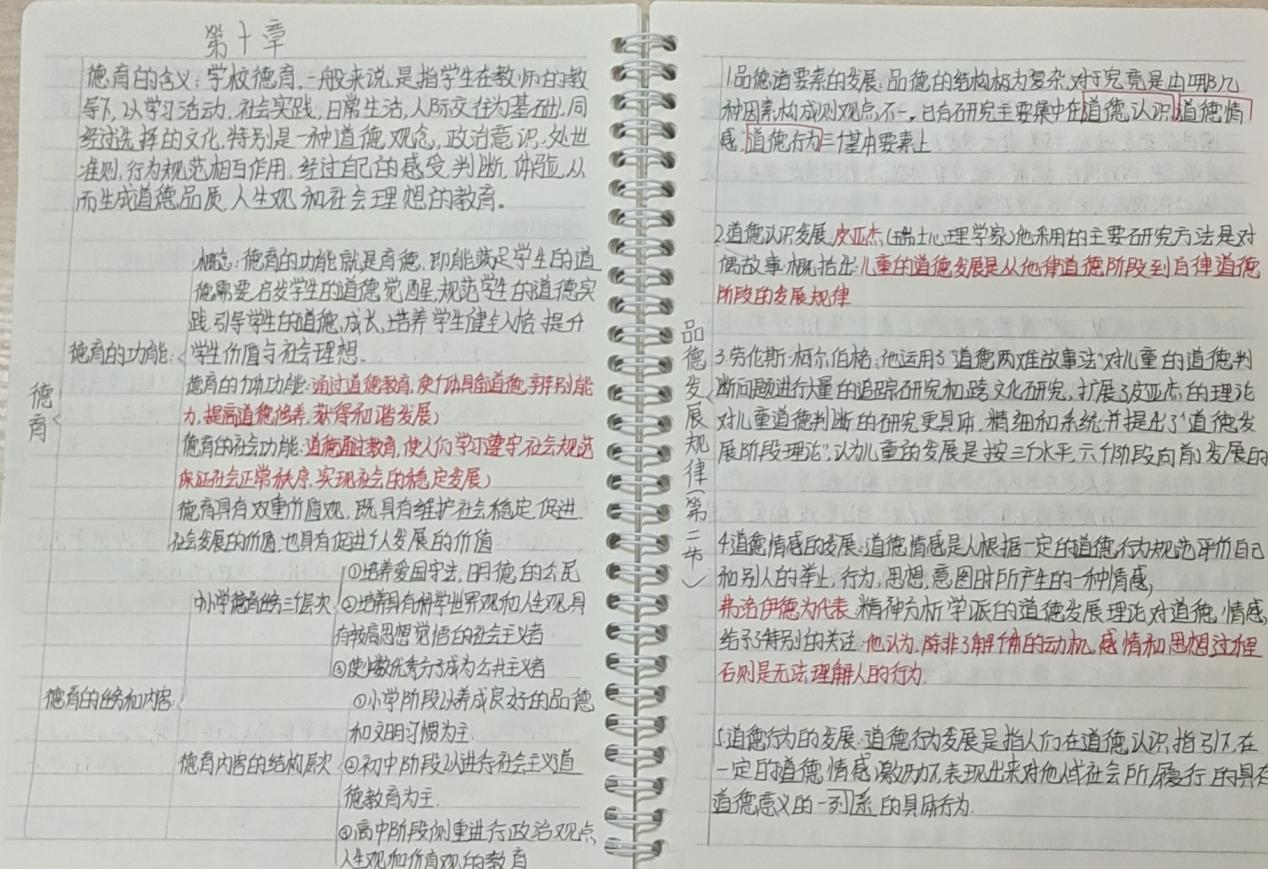 第十章
德育的含义：学校德育，一般来说，是指学生在教师的教
导下，以学习活动，社会实践，日常生活，人际交往为基础，同
经过选择的文化，特别是一种道德观念，政治意识，处世
准则，行为规范相互作用，经过自己的感受，判断，体验，从
而生成道德品质，人生观和社会理想的教育。
概念：德育的功能就是育德，即能满足学生的道
德需要，启发学生的道德觉醒，规范学生的道德实
践，引导学生的道德成长，培养学生健全人格，提升
学生价值与社会理想.
德育的功能：
德育的个体功能：通过道德教育，使个体具备道德辨别能
力，提高道德修养，获得和谐发展)
德育
德育的社会功能：道德通过教育，使人们学习遵守社会规范
保证社会正常秩序，实现社会的稳定发展)
德育具有双重价值观，既具有维护社会稳定，促进
社会发展的价值，也具有促进个人发展的价值
①培养爱国守法，明德的公民
中小学德育任务三个层次
②培养具有科学世界观和人生观，具
有较高思想觉悟的社会主义者
③使少数优秀分子成为公共主义者
德育的任务和内容
①小学阶段以养成良好的品德
和文明习惯为主.
德育内容的结构层次
②初中阶段以进行社会主义道
德教育为主.
③高中阶段侧重进行政治观点
人生观和价值观的教育
品德发展规律(第三节)
1.品德诸要素的发展：品德的结构极为复杂，对于究竟是由哪几
种因素构成则观点不一，已有研究主要集中在道德认识，道德情
感，道德行为三个基本要素上
2.道德认识发展：皮亚杰(瑞士心理学家)他采用的主要研究方法是对
偶故事，概括出：儿童的道德发展是从他律道德阶段到自律道德
阶段的发展规律
3.劳伦斯·柯尔伯格：他运用了"道德两难故事法"对儿童的道德判
断问题进行大量的追踪研究和跨文化研究，扩展了皮亚杰的理论
对儿童道德判断的研究更具体，精细和系统并提出了"道德发
展阶段理论"，认为儿童的发展是按三个水平，六个阶段向前发展的
4.道德情感的发展：道德情感是人根据一定的道德行为规范评价自己
和别人的举止，行为，思想，意图时所产生的一种情感，
弗洛伊德为代表.精神分析学派的道德发展理论，对道德情感
给予了特别的关注.他认为，除非了解个体的动机，感情和思想过程
否则是无法理解人的行为.
5.道德行为的发展：道德行为发展是指人们在道德认识指引下，在
一定的道德情感激励下，表现出来对他人或社会所履行的具有
道德意义的一系列的具体行为.